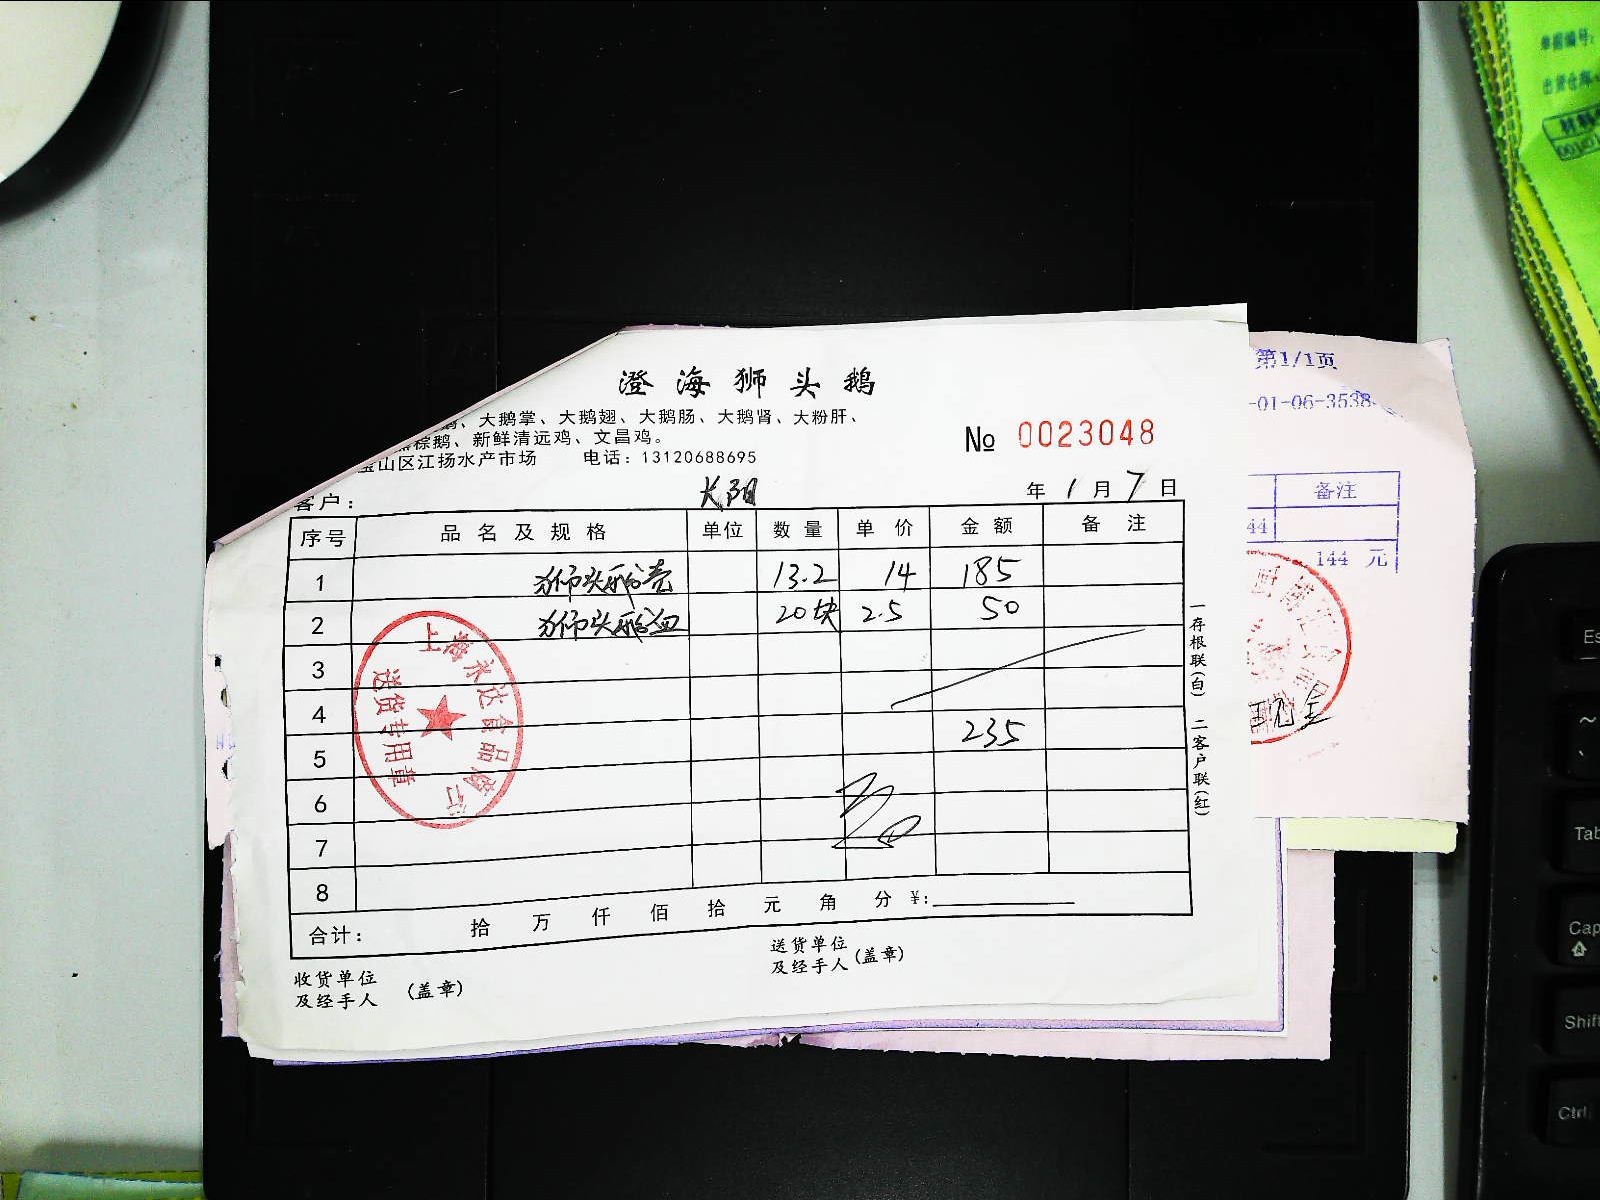 澄海狮头鹅
鹅、大鹅掌、大鹅翅、大鹅肠、大鹅肾、大粉肝、
棕鹅、新鲜清远鸡、文昌鸡。
宝山区江扬水产市场 电话：13120688695
№ 0023048
客户： 年 1 月 7 日
序号 品名及规格 单位 数量 单价 金额 备注
1 狮头鹅壳 13.2 14 185
2 狮头鹅血 20块 2.5 50
3
4
5 235
6
7
8
合计： 拾 万 仟 佰 拾 元 角 分 ¥：
收货单位
及经手人 (盖章)
送货单位
及经手人 (盖章)
一存根联(白) 二客户联(红)
上海永达食品商行
送货专用章
第1/1页
-01-06-3538
备注
44
144 元
单据编号：
出货仓库：
Es
Tab
Cap
Shift
Ctrl